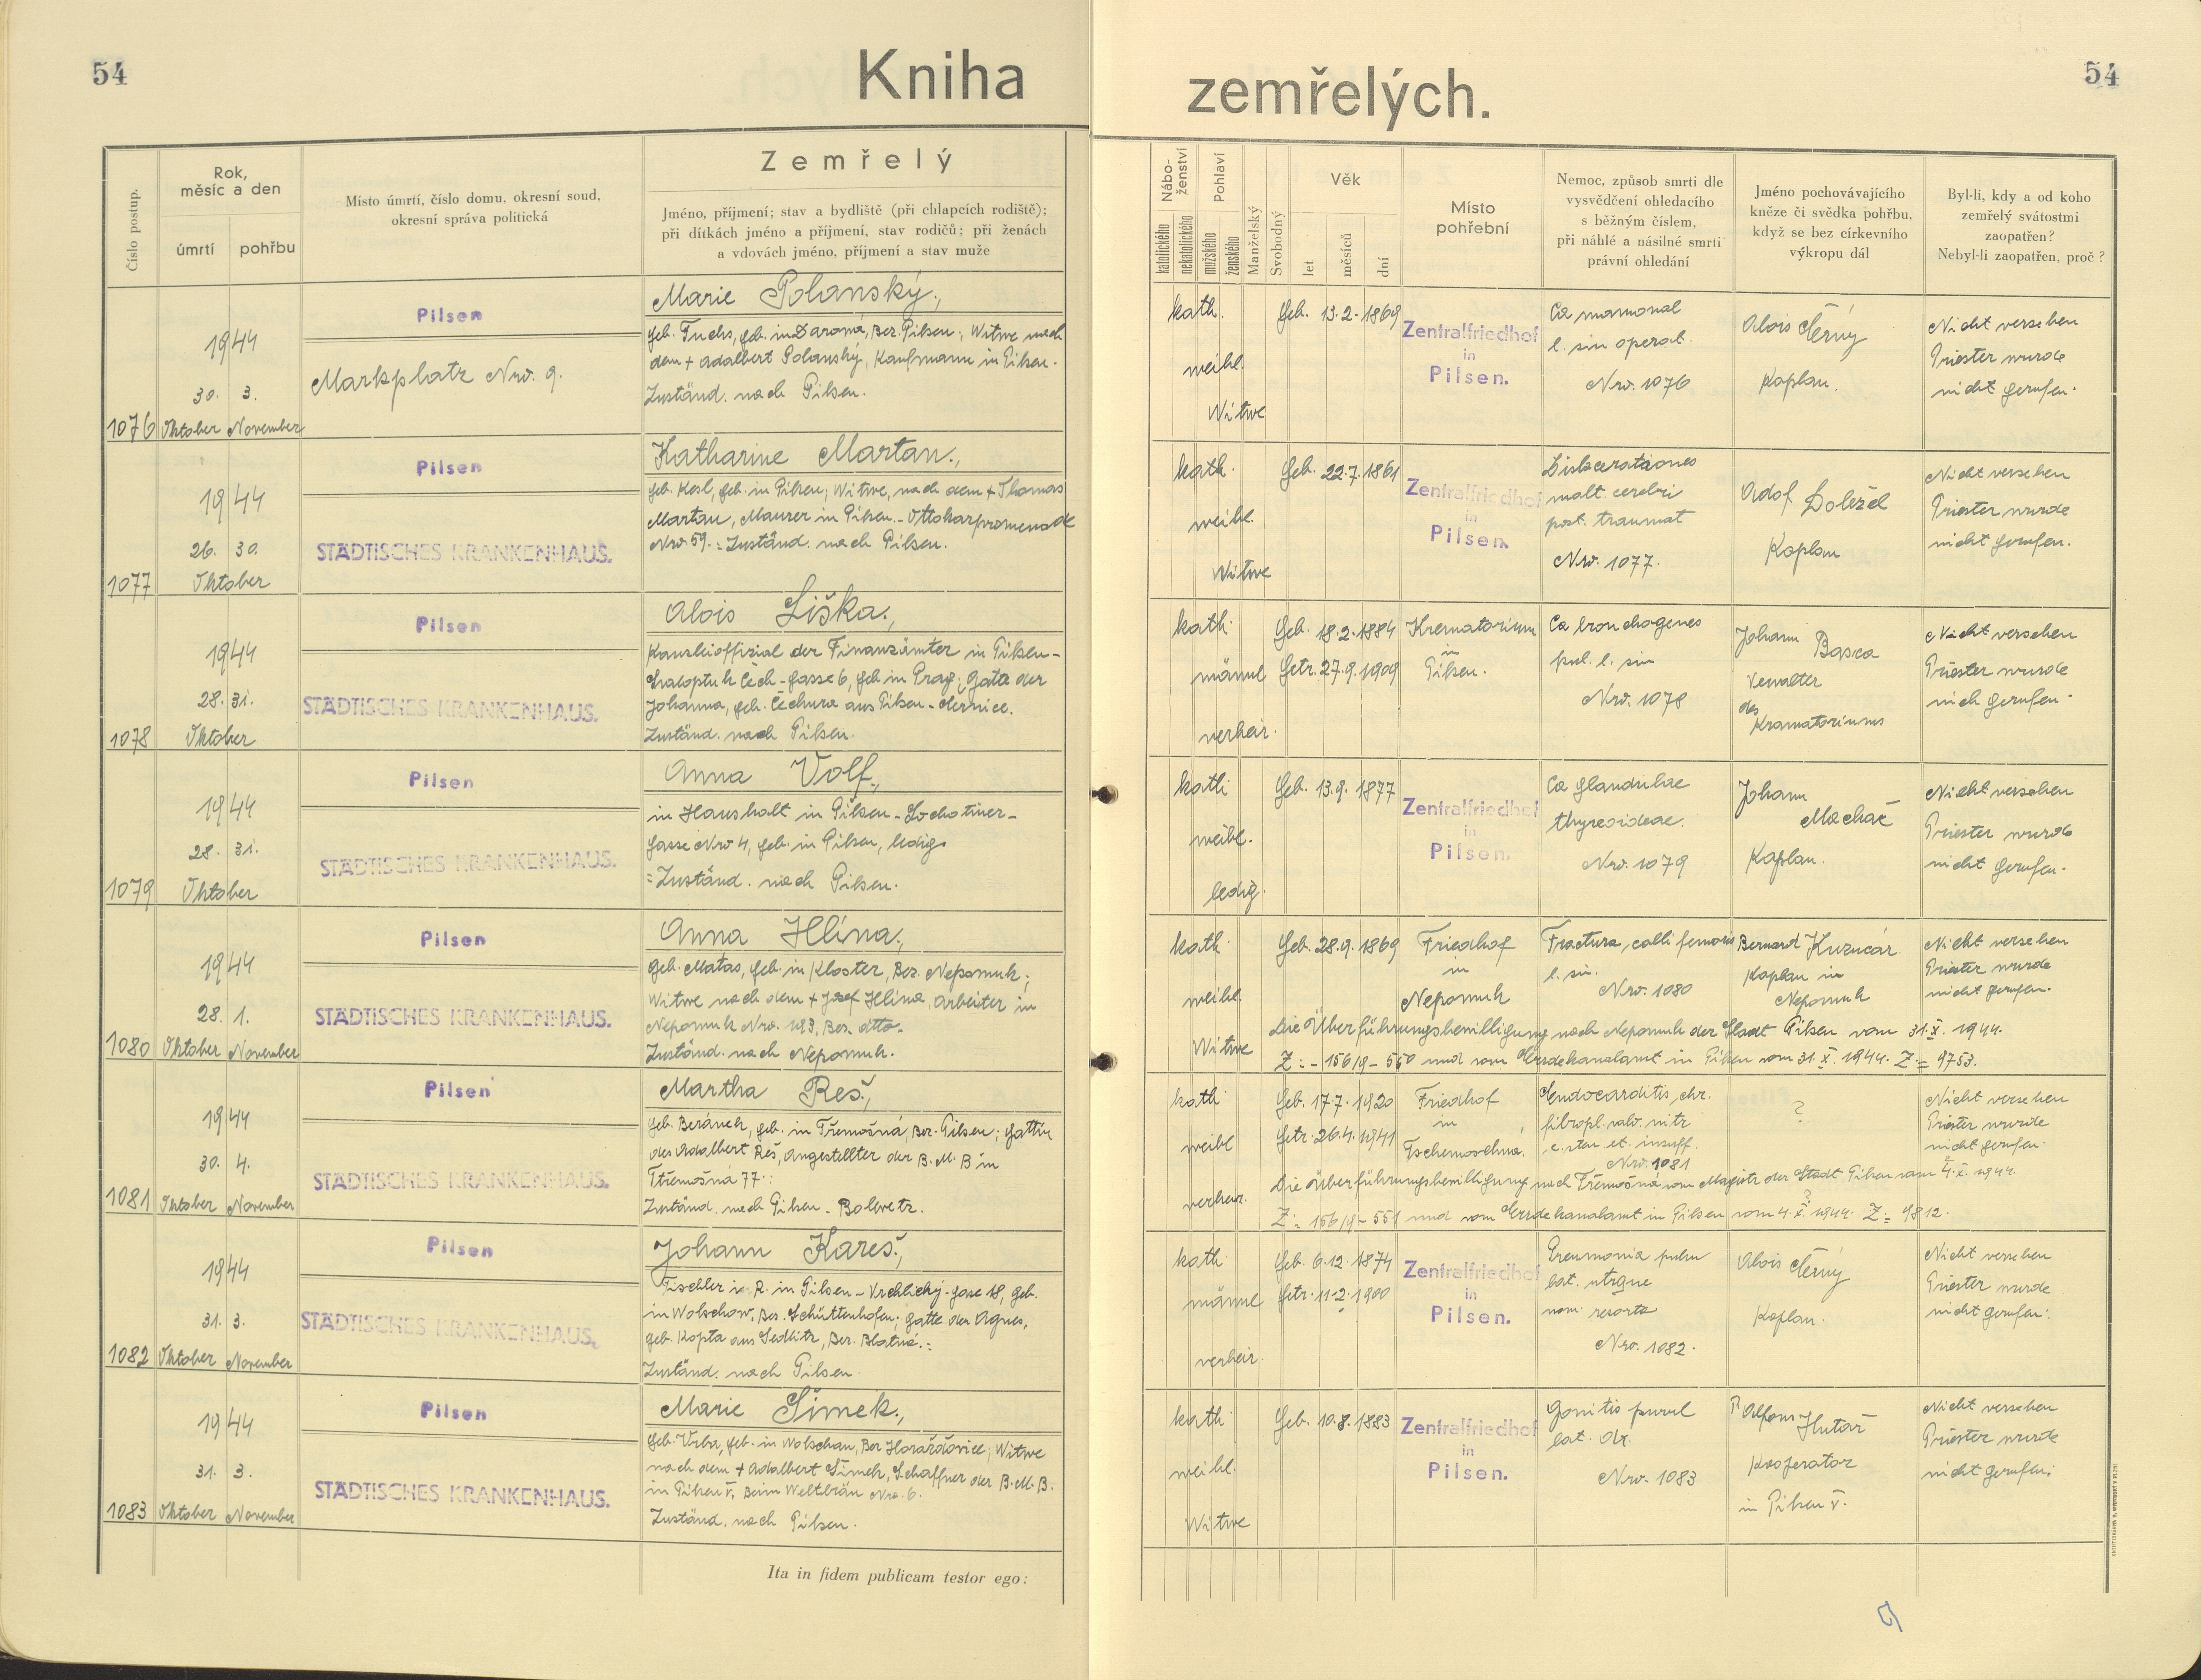 54
Kniha
zemřelých.
54
Číslo postup.
Rok,
měsíc a den
úmrtí
pohřbu
Místo úmrtí, číslo domu, okresní soud,
okresní správa politická
Zemřelý
Jméno, příjmení; stav a bydliště (při chlapcích rodiště);
při dítkách jméno a příjmení, stav rodičů; při ženách
a vdovách jméno, příjmení a stav muže
Nábo-
ženství
katolického
nekatolického
Pohlaví
mužského
ženského
Manželský
Svobodný
Věk
let
měsíců
dní
Místo
pohřební
Nemoc, způsob smrti dle
vysvědčení ohledacího
s běžným číslem,
při náhlé a násilné smrti
právní ohledání
Jméno pochovávajícího
kněze či svědka pohřbu,
když se bez církevního
výkropu dál
Byl-li, kdy a od koho
zemřelý svátostmi
zaopatřen?
Nebyl-li zaopatřen, proč?
1076
1944
30. 3.
Oktober November
Pilsen
Markplatz Nro. 9.
Marie Polanský,
geb. Fuchs, geb. in Darowa, Bez. Pilsen; Witwe nach
dem + Adalbert Polanský, Kaufmann in Pilsen.
Zuständ. nach Pilsen.
kath.
weibl.
Witwe
Geb. 13.2.1869
Zentralfriedhof
in
Pilsen.
Ca mammal
l. sin operat.
Nro. 1076
Alois Černý
Kaplan.
Nicht versehen
Priester wurde
nicht gerufen.
1077
1944
26. 30.
Oktober
Pilsen
STÄDTISCHES KRANKENHAUS.
Katharine Martan,
geb. Kesl, geb. in Pilsen; Witwe, nach dem + Thomas
Martan, Maurer in Pilsen - Ottokarpromenade
Nro 59. Zuständ. nach Pilsen.
kath.
weibl.
Witwe
Geb. 22.7.1861
Zentralfriedhof
in
Pilsen.
malt. cerebri
post. traumat
Nro. 1077.
Adof Doležel
Kaplan
Nicht versehen
Priester wurde
nicht gerufen.
1078
1944
28. 31.
Oktober
Pilsen
STÄDTISCHES KRANKENHAUS.
Alois Liška,
Kanzleioffizial der Finanzämter in Pilsen-
Čech-Gasse 6, geb in Prag; Gatte der
Johanna, geb. Čechura aus Pilsen-Černice.
Zuständ. nach Pilsen.
kath.
männl
verheir.
Geb. 18.2.1884
Getr. 27.9.1909
Krematorium
in
Pilsen.
Ca bronchogenes
pul. l. sin
Nro. 1078
Johann Basca
Verwalter
des
Krematoriums
Nicht versehen
Priester wurde
nich gerufen.
1079
1944
28. 31.
Oktober
Pilsen
STÄDTISCHES KRANKENHAUS.
Anna Volf,
in Haushalt in Pilsen - Lochotiner-
gasse Nro 4, geb. in Pilsen, ledig.
Zuständ. nach Pilsen.
kath
weibl.
ledig.
Geb. 13.9.1877
Zentralfriedhof
in
Pilsen.
Ca glandulae
thyreoideae.
Nro. 1079
Johann
Machač
Kaplan.
Nicht versehen
Priester wurde
nicht gerufen.
1080
1944
28. 1.
Oktober November
Pilsen
STÄDTISCHES KRANKENHAUS.
Anna Hlína,
Geb. Matas, geb. in Kloster, Bez. Nepomuk;
Witwe nach dem + Josef Hlína, Arbeiter in
Nepomuk Nro. 183, Bez. dtto.
Zuständ. nach Nepomuk.
kath.
weibl.
Witwe
Geb. 28.9.1869
Friedhof
in
Nepomuk
Fractura colli femoris
l. sin.
Nro. 1080
Bernard Kuzucár
Kaplan in
Nepomuk
Nicht versehen
Priester wurde
nicht gerufen.
Die Überführungsbewilligung nach Nepomuk der Stadt Pilsen vom 31.X.1944.
Z: - 156/9 - 550 und vom Erzdekanalamt in Pilsen vom 31.X.1944. Z = 9753.
1081
1944
30. 4.
Oktober November
Pilsen
STÄDTISCHES KRANKENHAUS.
Martha Reš,
geb. Beránek, geb. in Třemošná, Bez. Pilsen; Gattin
des Adalbert Reš, Angestellter der B.M.B in
Třemošná 77.
Zuständ. nach Pilsen - Bolewetz.
kath
weibl
verheir.
Geb. 17.7.1920
Getr. 26.4.1941
Friedhof
in
Tschemoschna.
Endocarditis chr.
fibropl. valv. mitr
c. sten et. insuff.
Nro. 1081
?
Nicht versehen
Priester wurde
nicht gerufen.
Die Überführungsbewilligung nach Třemošná vom Magistr der Stadt Pilsen vom 4.X.1944.
Z: 156/9 - 551 und vom Erzdekanalamt in Pilsen vom 4.X.1944. Z = 9812.
1082
1944
31. 3.
Oktober November
Pilsen
STÄDTISCHES KRANKENHAUS.
Johann Kareš,
Tischler i. R. in Pilsen - Vrchlický-gasse 18, geb.
in Wolschow, Bez. Schüttenhofen; Gatte der Agnes,
geb. Kopta aus Sedlitz, Bez. Blatná.
Zuständ. nach Pilsen
kath
männl
verheir.
Geb. 6.12.1874
Getr. 11.2.1900
Zentralfriedhof
in
Pilsen.
Pneumonia pulm
lat. utrque
Nro. 1082.
Alois Černý
Kaplan.
Nicht versehen
Priester wurde
nicht gerufen.
1083
1944
31. 3.
Oktober November
Pilsen
STÄDTISCHES KRANKENHAUS.
Marie Šimek,
Geb. Vrba, geb. in Wolschan, Bez Horažďovice; Witwe
nach dem + Adalbert Šimek, Schaffner der B.M.B.
in Pilsen V, Beim Weltbräu Nro. 6.
Zuständ. nach Pilsen.
kath
weibl.
Witwe
Geb. 10.8.1883
Zentralfriedhof
in
Pilsen.
Gonitis purul
lat. dx.
Nro. 1083
P. Alfons Hutař
Kooperator
in Pilsen V.
Nicht versehen
Priester wurde
nicht gerufen;
Ita in fidem publicam testor ego: